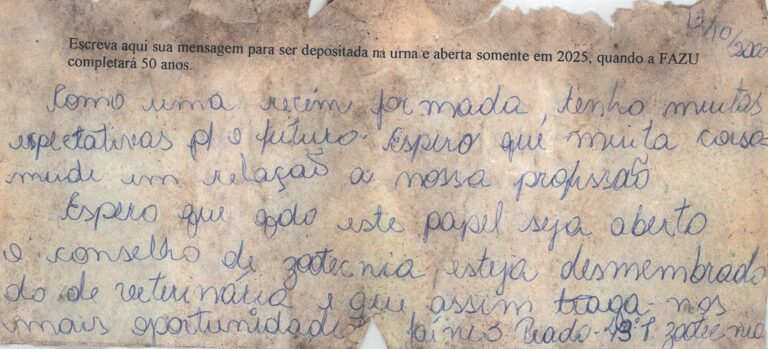 13/10/2000
Escreva aqui sua mensagem para ser depositada na urna e aberta somente em 2025, quando a FAZU
completará 50 anos.
Como uma recém formada, tenho muitas
espectativas p/ o futuro. Espero que muita coisa
mude em relação a nossa profissão.
Espero que qdo este papel seja aberto
o conselho de zootecnia esteja desmembrado
do de veterinária e que assim traga-nos
mais oportunidade Prado - zootecnia